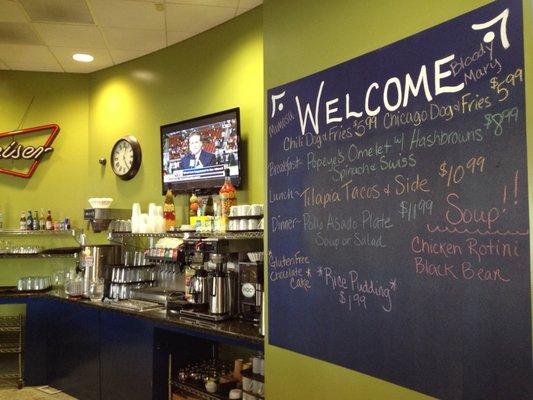 WELCOME
Mimosa
Bloody
Mary
$5.99
Chili Dog & Fries $5.99
Chicago Dog & Fries
Breakfast~ Popeye's Omelet w/ Hashbrowns $8.99
Spinach & Swiss
Lunch~ Tilapia Tacos & Side $10.99
Dinner~ Pollo Asado Plate $11.99
Soup or Salad
Soup!!
Chicken Rotini
Black Bean
*Gluten Free
Chocolate *
Cake
*Rice Pudding*
$1.99